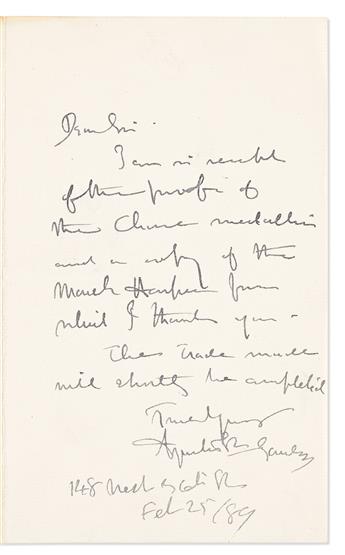 Dear Sir.
I am in receipt
of the proofs of
the Chase medallion
and a copy of the
March Harpers from
which I thank you -
The Trade mark
will shortly be completed
Truly yours
Augustus St Gaudens
148 West 36th St
Feb 25/89